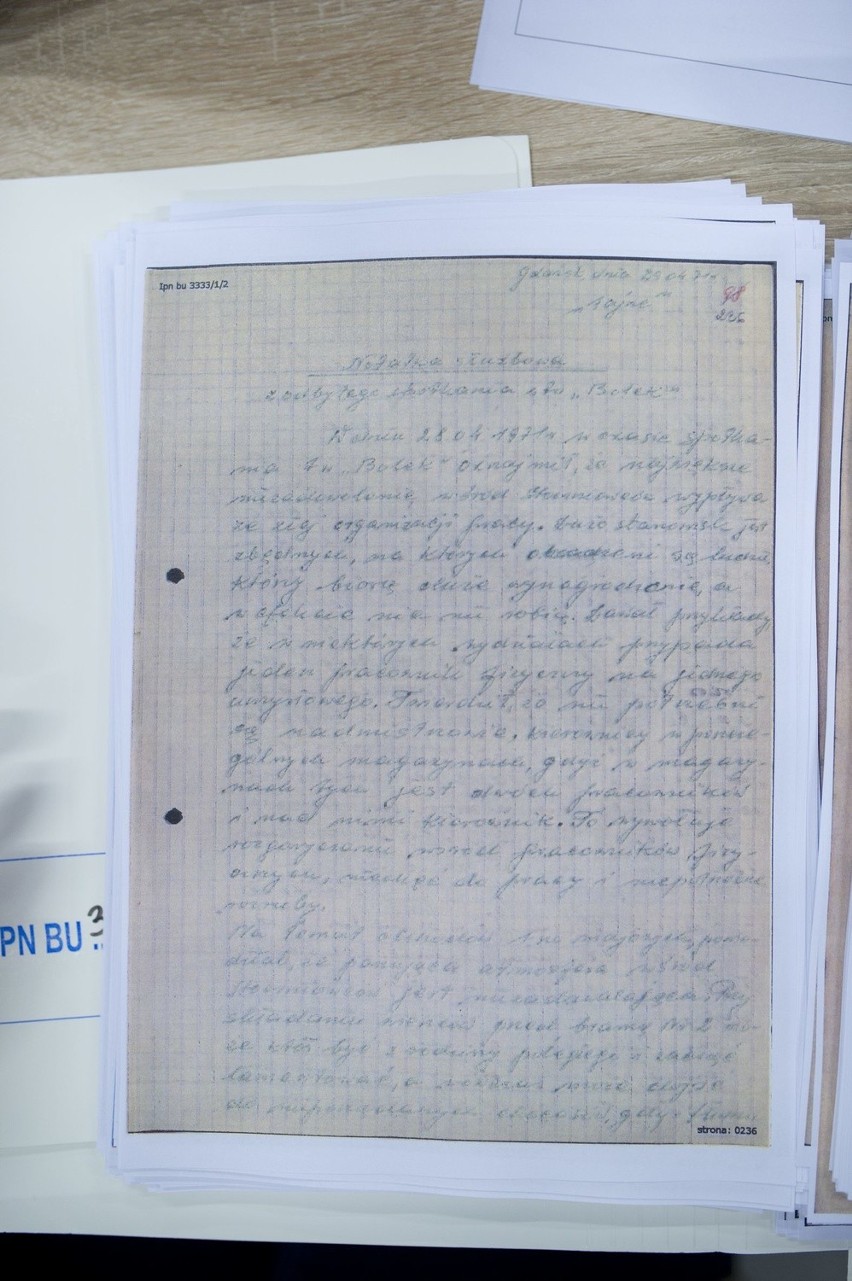 Ipn bu 3333/1/2
Gdańsk, dnia 29 04 71r
98
„Tajne"
236
Notatka służbowa
z odbytego spotkania z tw „Bolek"
W dniu 28.04.1971r w czasie spotka-
nia tw „Bolek" oznajmił, że największe
niezadowolenie wśród stoczniowców wypływa
ze złej organizacji pracy. Dużo stanowisk jest
zbędnych, na których są ludzie,
którzy biorą duże wynagrodzenie, a
w efekcie nic nie robią. Podał przykłady,
że w niektórych wydziałach przypada
jeden pracownik fizyczny na jednego
umysłowego. Twierdził, że nie potrzebni
są nadmistrzowie, kierownicy w poszcze-
gólnych magazynach, gdyż w magazy-
nach tych jest dwóch pracowników
i nad nimi kierownik. To wywołuje
rozgoryczenie wśród pracowników fizy-
cznych, niechęć do pracy i
Na temat obchodów 1-go majowych powie-
dział, że panująca atmosfera wśród
stoczniowców jest niezadawalająca. Przy
składaniu wieńców przed bramą Nr 2 mo-
że ktoś być z rodziny poległego i zacząć
lamentować, a wówczas może dojść
do nieporządanych gdyż
strona: 0236
PN BU 3